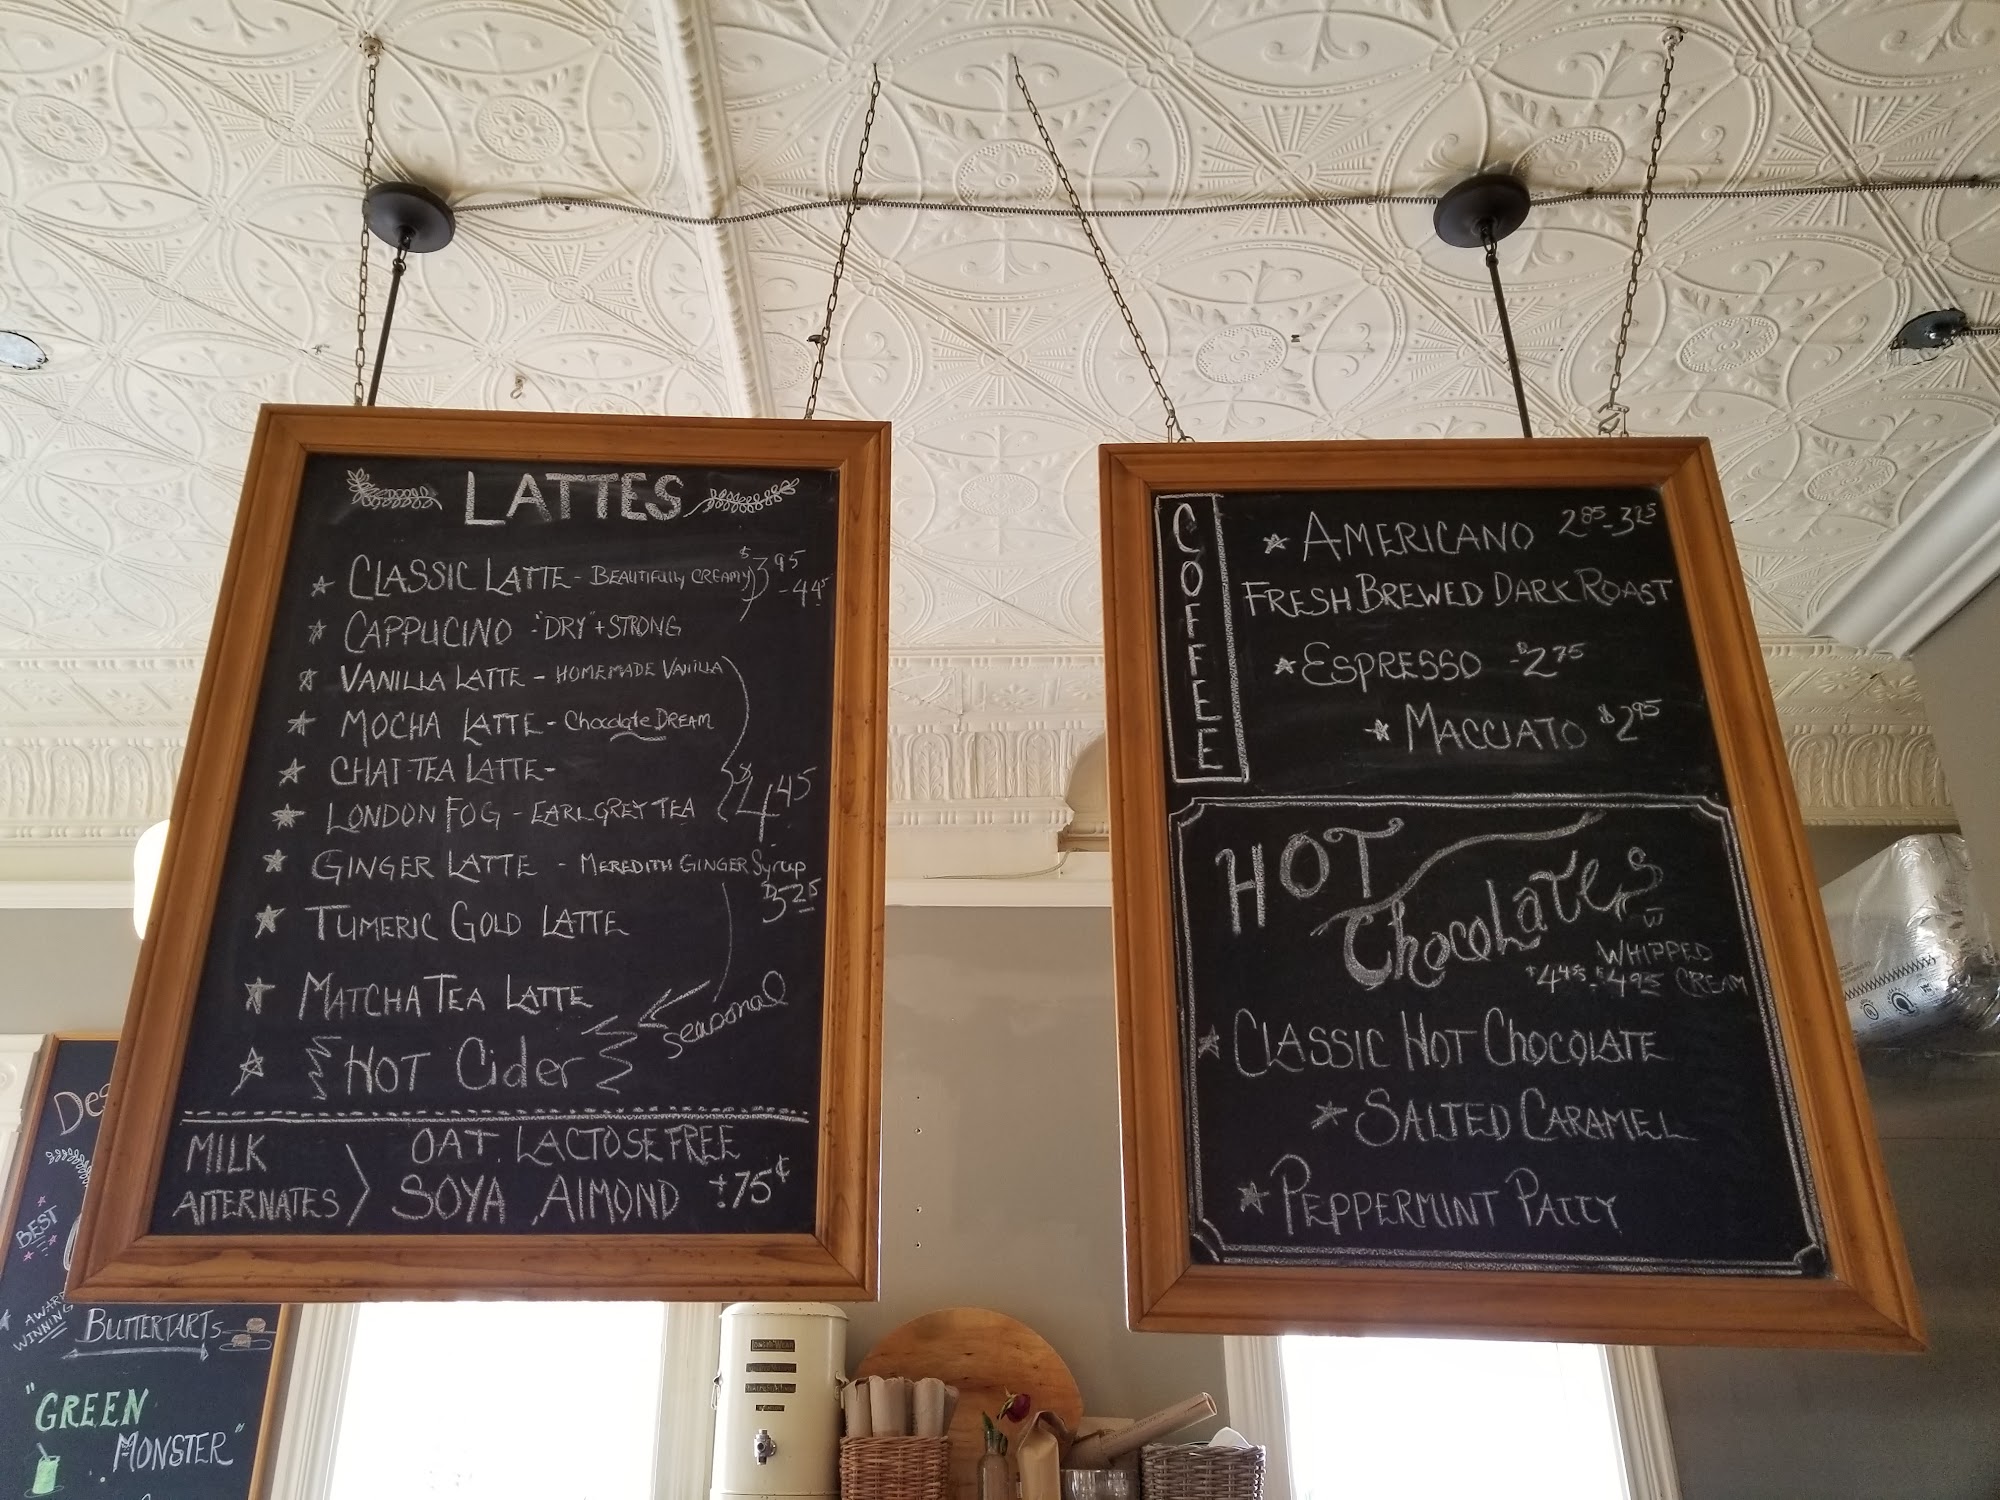 LATTES
CLASSIC LATTE - BEAUTIFULLY CREAMY $3.95 - 4.45
CAPPUCINO - "DRY" + STRONG
VANILLA LATTE - HOMEMADE VANILLA
MOCHA LATTE - Chocolate DREAM
CHAI TEA LATTE -
LONDON FOG - EARL GREY TEA $4.45
GINGER LATTE - MEREDITH GINGER Syrup
TUMERIC GOLD LATTE
MATCHA TEA LATTE
seasonal
HOT Cider
MILK ALTERNATES > OAT. LACTOSE FREE
SOYA, ALMOND +.75¢
COFFEE
AMERICANO 2.85-3.25
FRESH BREWED DARK ROAST
ESPRESSO - $2.75
MACCIATO $2.95
HOT
CHOCOLATES
WHIPPED
$4.45-$4.95 CREAM
CLASSIC HOT CHOCOLATE
SALTED CARAMEL
PEPPERMINT PATTY
BEST
AWARD
WINNING
BUTTERTARTS
"GREEN
MONSTER"